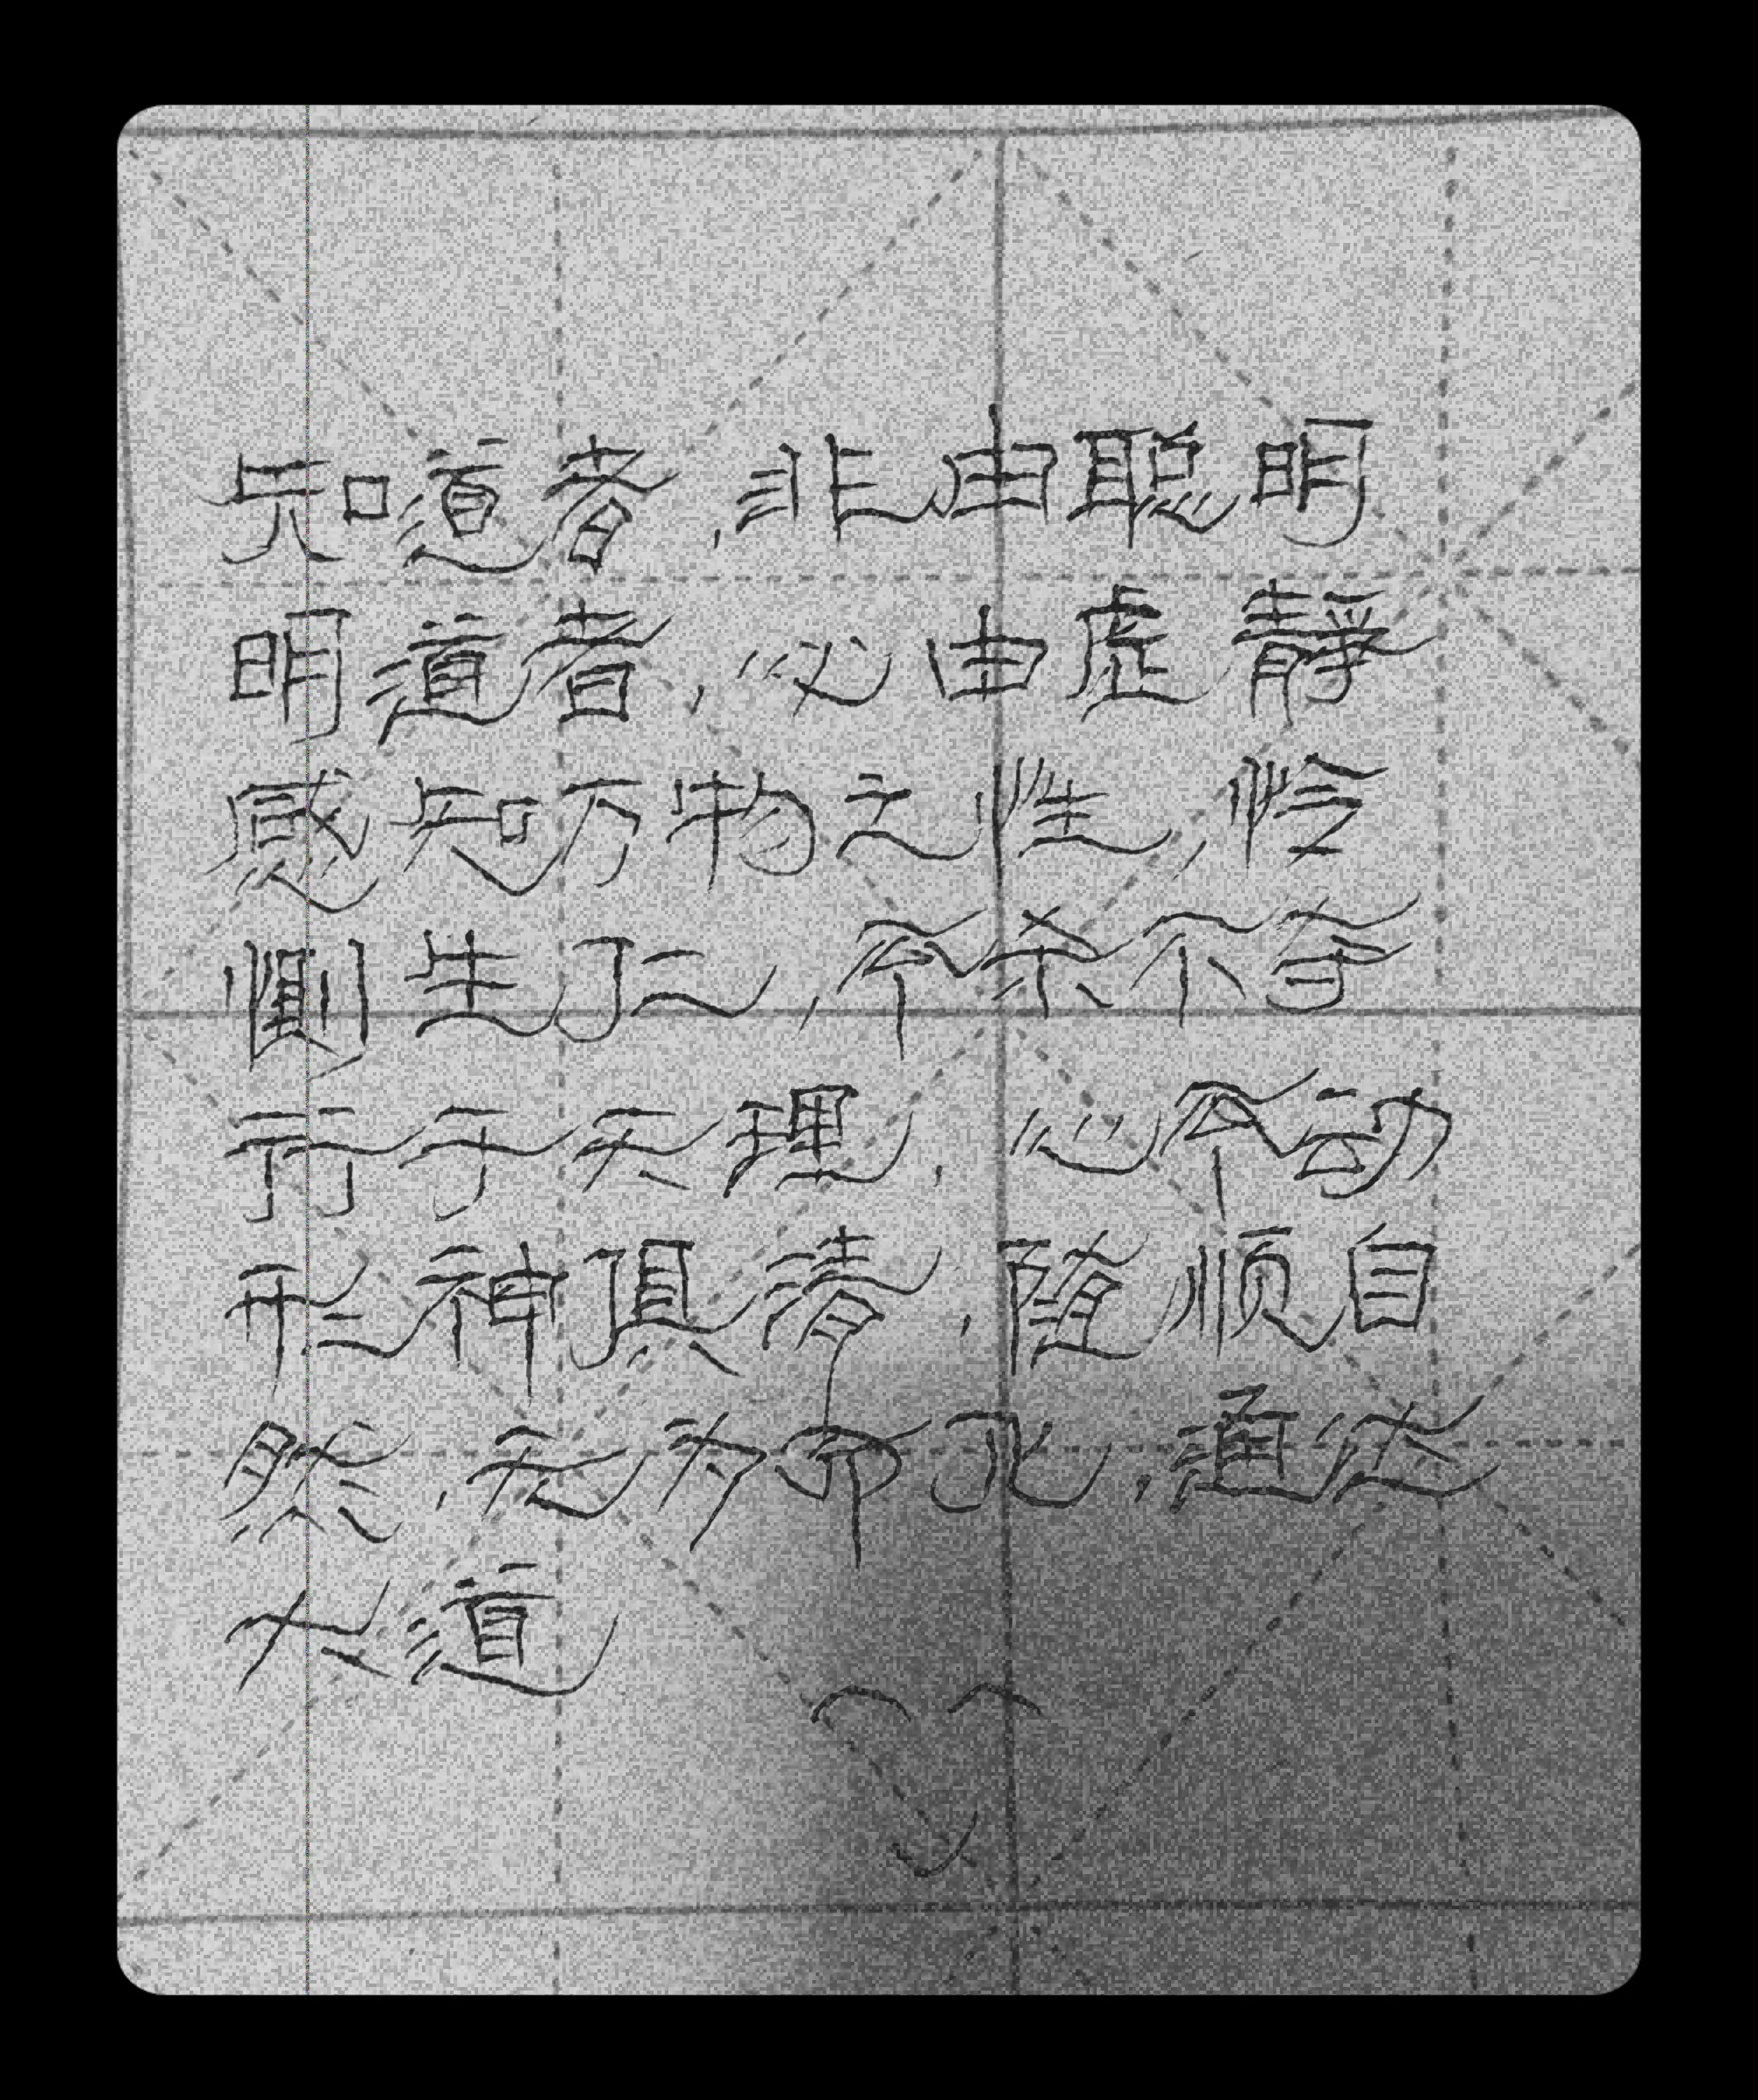 知道者,非由聪明
明道者,必由虚静
感知万物之性,怜
恻生仁,不杀不夺
行于天理,心不动
形神俱清,随顺自
然,无为而化,通达
大道